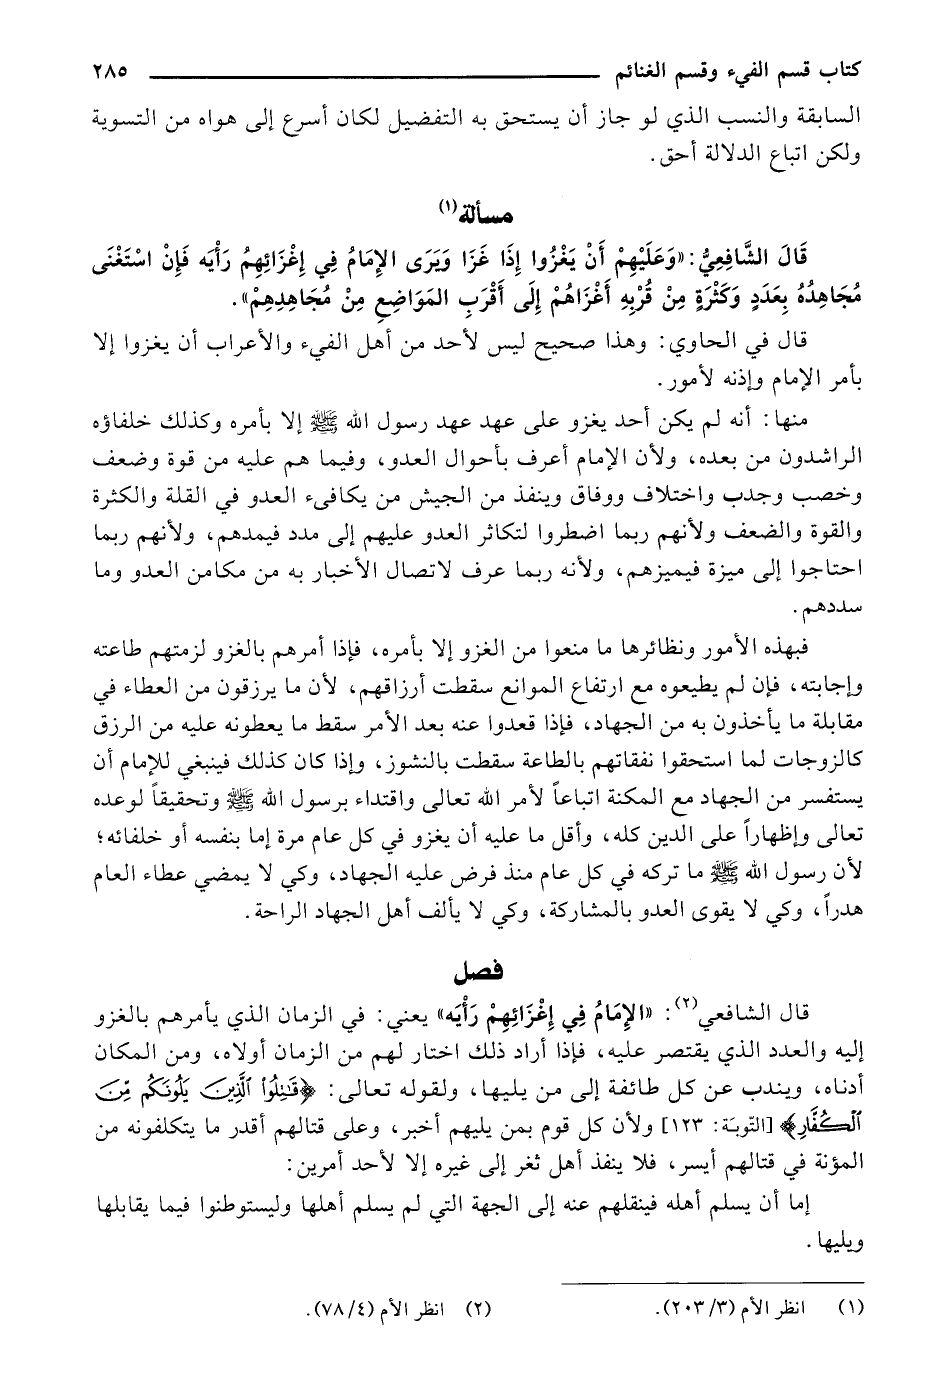 كتاب قسم الفيء وقسم الغنائم ٢٨٥
السابقة والنسب الذي لو جاز أن يستحق به التفضيل لكان أسرع إلى هواه من التسوية
ولكن اتباع الدلالة أحق.
مسألة(١)
قَالَ الشَّافِعِيُّ: «وَعَلَيْهِمْ أَنْ يَغْزُوا إِذَا غَزَا وَيَرَى الإِمَامُ فِي إِغْزَائِهِمْ رَأْيَه فَإِنْ اسْتَغْنَى
مُجَاهِدُهُ بِعَدَدٍ وَكَثْرَةٍ مِنْ قُرْبِهِ أَغْزَاهُمْ إِلَى أَقْرَبِ المَوَاضِعِ مِنْ مُجَاهِدِهِمْ».
قال في الحاوي: وهذا صحيح ليس لأحد من أهل الفيء والأعراب أن يغزوا إلا
بأمر الإمام وإذنه لأمور.
منها: أنه لم يكن أحد يغزو على عهد عهد رسول الله ﷺ إلا بأمره وكذلك خلفاؤه
الراشدون من بعده، ولأن الإمام أعرف بأحوال العدو، وفيما هم عليه من قوة وضعف
وخصب وجدب واختلاف ووفاق وينفذ من الجيش من يكافىء العدو في القلة والكثرة
والقوة والضعف ولأنهم ربما اضطروا لتكاثر العدو عليهم إلى مدد فيمدهم، ولأنهم ربما
احتاجوا إلى ميزة فيميزهم، ولأنه ربما عرف لاتصال الأخبار به من مكامن العدو وما
سددهم.
فبهذه الأمور ونظائرها ما منعوا من الغزو إلا بأمره، فإذا أمرهم بالغزو لزمتهم طاعته
وإجابته، فإن لم يطيعوه مع ارتفاع الموانع سقطت أرزاقهم، لأن ما يرزقون من العطاء في
مقابلة ما يأخذون به من الجهاد، فإذا قعدوا عنه بعد الأمر سقط ما يعطونه عليه من الرزق
كالزوجات لما استحقوا نفقاتهم بالطاعة سقطت بالنشوز، وإذا كان كذلك فينبغي للإمام أن
يستفسر من الجهاد مع المكنة اتباعاً لأمر الله تعالى واقتداء برسول الله ﷺ وتحقيقاً لوعده
تعالى وإظهاراً على الدين كله، وأقل ما عليه أن يغزو في كل عام مرة إما بنفسه أو خلفائه؛
لأن رسول الله ﷺ ما تركه في كل عام منذ فرض عليه الجهاد، وكي لا يمضي عطاء العام
هدراً، وكي لا يقوى العدو بالمشاركة، وكي لا يألف أهل الجهاد الراحة.
فصل
قال الشافعي(٢): «الإِمَامُ فِي إِغْزَائِهِمْ رَأْيَه» يعني: في الزمان الذي يأمرهم بالغزو
إليه والعدد الذي يقتصر عليه، فإذا أراد ذلك اختار لهم من الزمان أولاه، ومن المكان
أدناه، ويندب عن كل طائفة إلى من يليها، ولقوله تعالى: ﴿قَٰتِلُوا۟ ٱلَّذِينَ يَلُونَكُم مِّنَ
ٱلْكُفَّارِ﴾ [التّوبَة: ١٢٣] ولأن كل قوم بمن يليهم أخبر، وعلى قتالهم أقدر ما يتكلفونه من
المؤنة في قتالهم أيسر، فلا ينفذ أهل ثغر إلى غيره إلا لأحد أمرين:
إما أن يسلم أهله فينقلهم عنه إلى الجهة التي لم يسلم أهلها وليستوطنوا فيما يقابلها
ويليها.
(١) انظر الأم (٢٠٣/٣). (٢) انظر الأم (٧٨/٤).